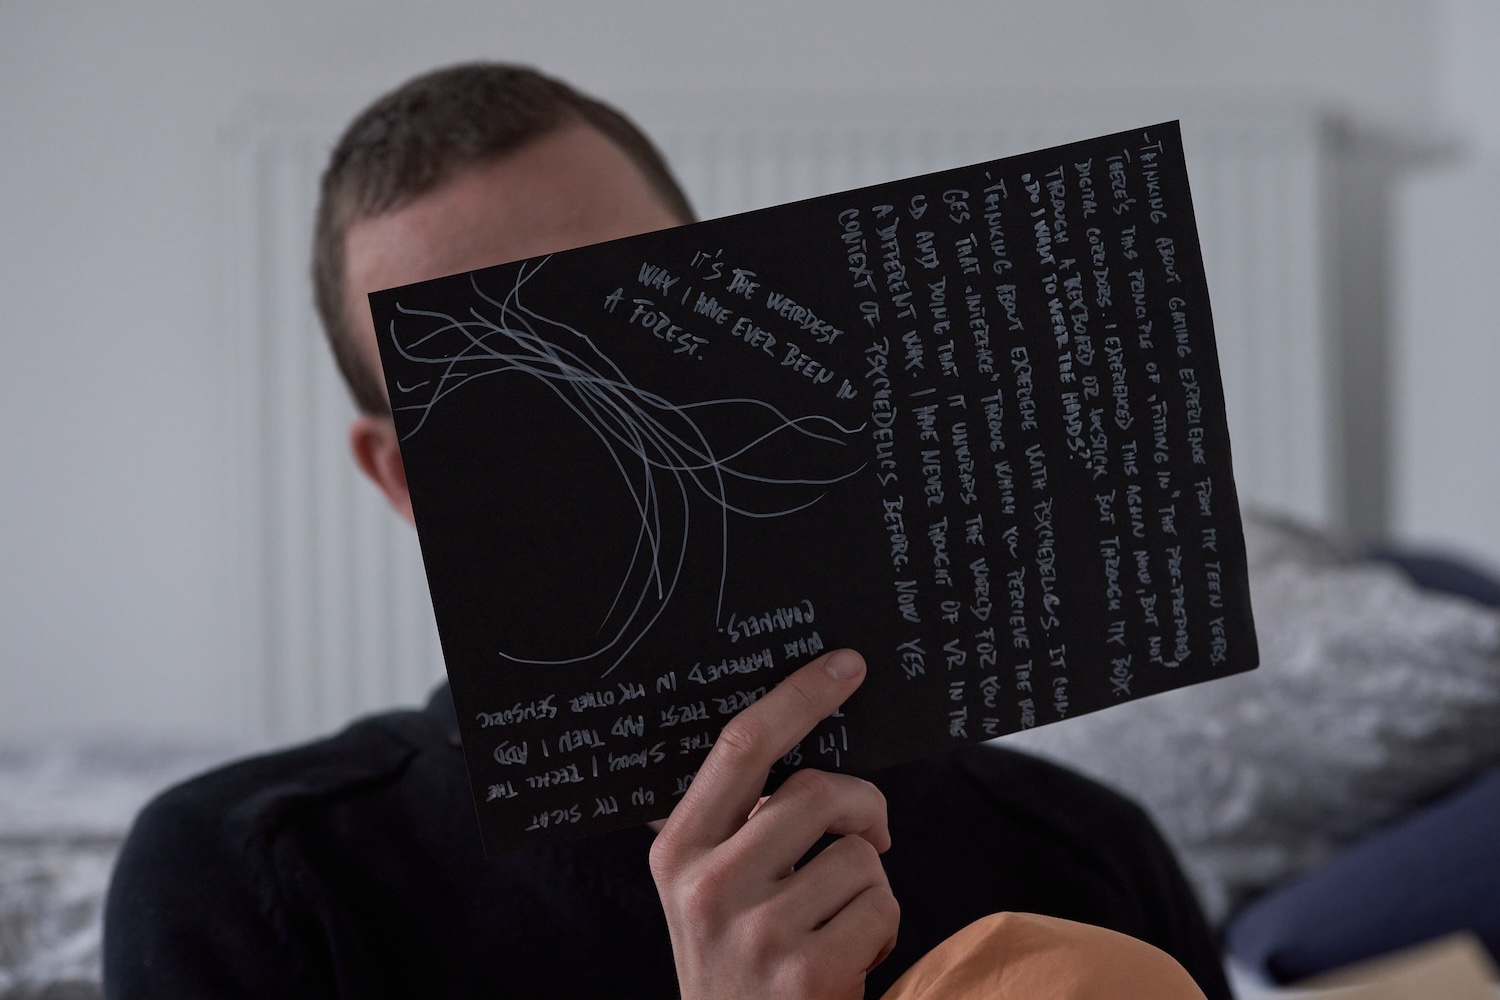 IT'S THE WEIRDEST
WAY I HAVE EVER BEEN IN
A FOREST.
-THINKING ABOUT GAMING EXPERIENCE FROM MY TEEN YEARS.
THERE'S THIS PRINCIPLE OF "FITTING IN" THE PRE-PREPARED,
DIGITAL CORRIDORS. I EXPERIENCED THIS AGAIN NOW, BUT NOT
THROUGH A KEYBOARD OR JOYSTICK BUT THROUGH MY BODY
"DO I WANT TO WEAR THE HANDS?"
-THINKING ABOUT EXPERIENE WITH PSYCHEDELICS. IT CHAN-
GES THAT "INTERFACE" THROUG WHICH YOU PERCIEVE THE WOR
LD AND DOING THAT IT UNWRAPS THE WORLD FOR YOU IN
A DIFFERENT WAY. I HAVE NEVER THOUGHT OF VR IN THE
CONTEXT OF PSYCHEDELICS BEFORE. NOW YES
I'M
SO
ON MY SIGHT
THE SHOW, I RECALL THE
LAYER FIRST AND THEN I ADD
WHAT HAPPENED IN MY OTHER SENSORIC
CHANNELS.